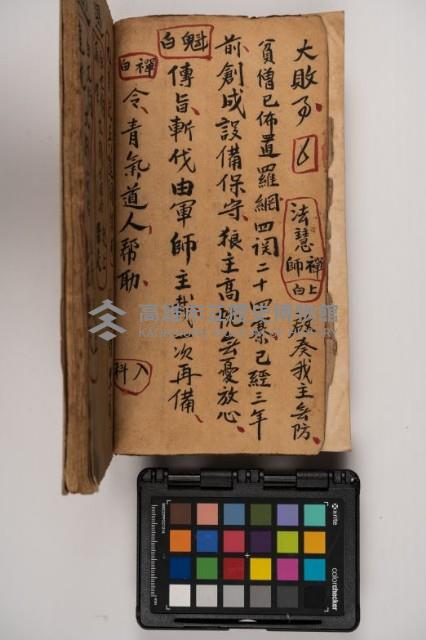 大敗 法慧禪師上白 啟奏我主無防
貧僧已佈置羅網四 二十四寨已經三年
前創成設備保守狼主高 無憂放心
魁白 傳旨斬伐由軍師主裁 次再備
禪白 令青氣道人幫助 入科
高雄市立歷史博物館
KAOHSIUNG MUSEUM OF HISTORY
x-rite
colorchecker